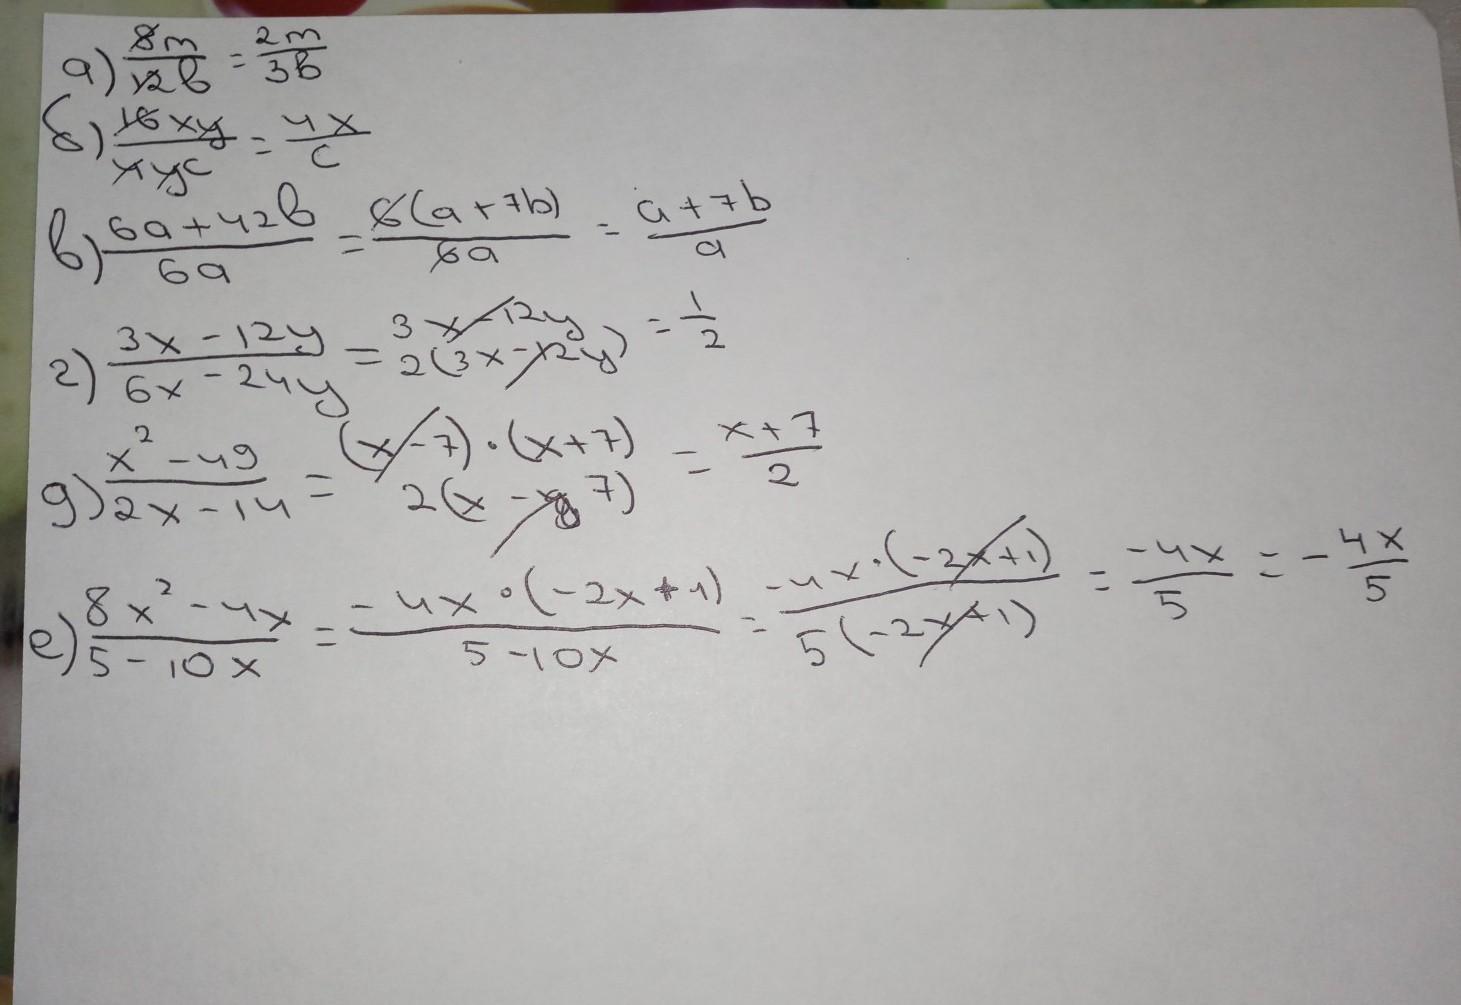 а) 8m/12b = 2m/3b
б) 16xy/xyc = 4x/c
в) 6a+42b/6a = 6(a+7b)/6a = a+7b/a
г) 3x-12y/6x-24y = 3x-12y/2(3x-12y) = 1/2
д) x²-49/2x-14 = (x-7)·(x+7)/2(x-7) = x+7/2
е) 8x²-4x/5-10x = -4x·(-2x+1)/5-10x = -4x·(-2x+1)/5(-2x+1) = -4x/5 = -4x/5